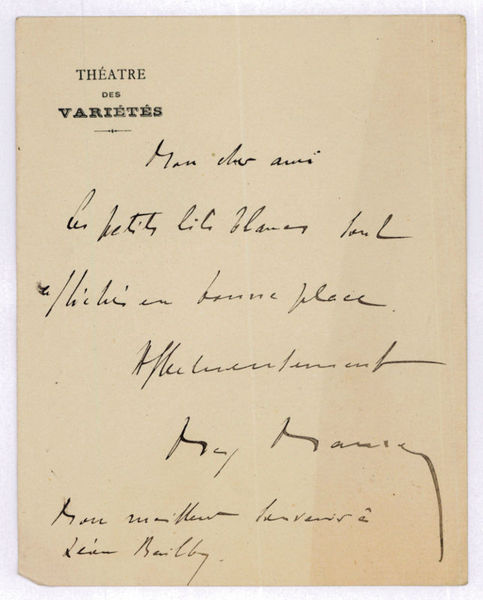 THÉATRE
DES
VARIÉTÉS
Mon cher ami
Les petits lits blancs sont
affichés en bonne place.
Affectueusement
Max Maurey
Mon meilleur souvenir à
Léon Bailby.